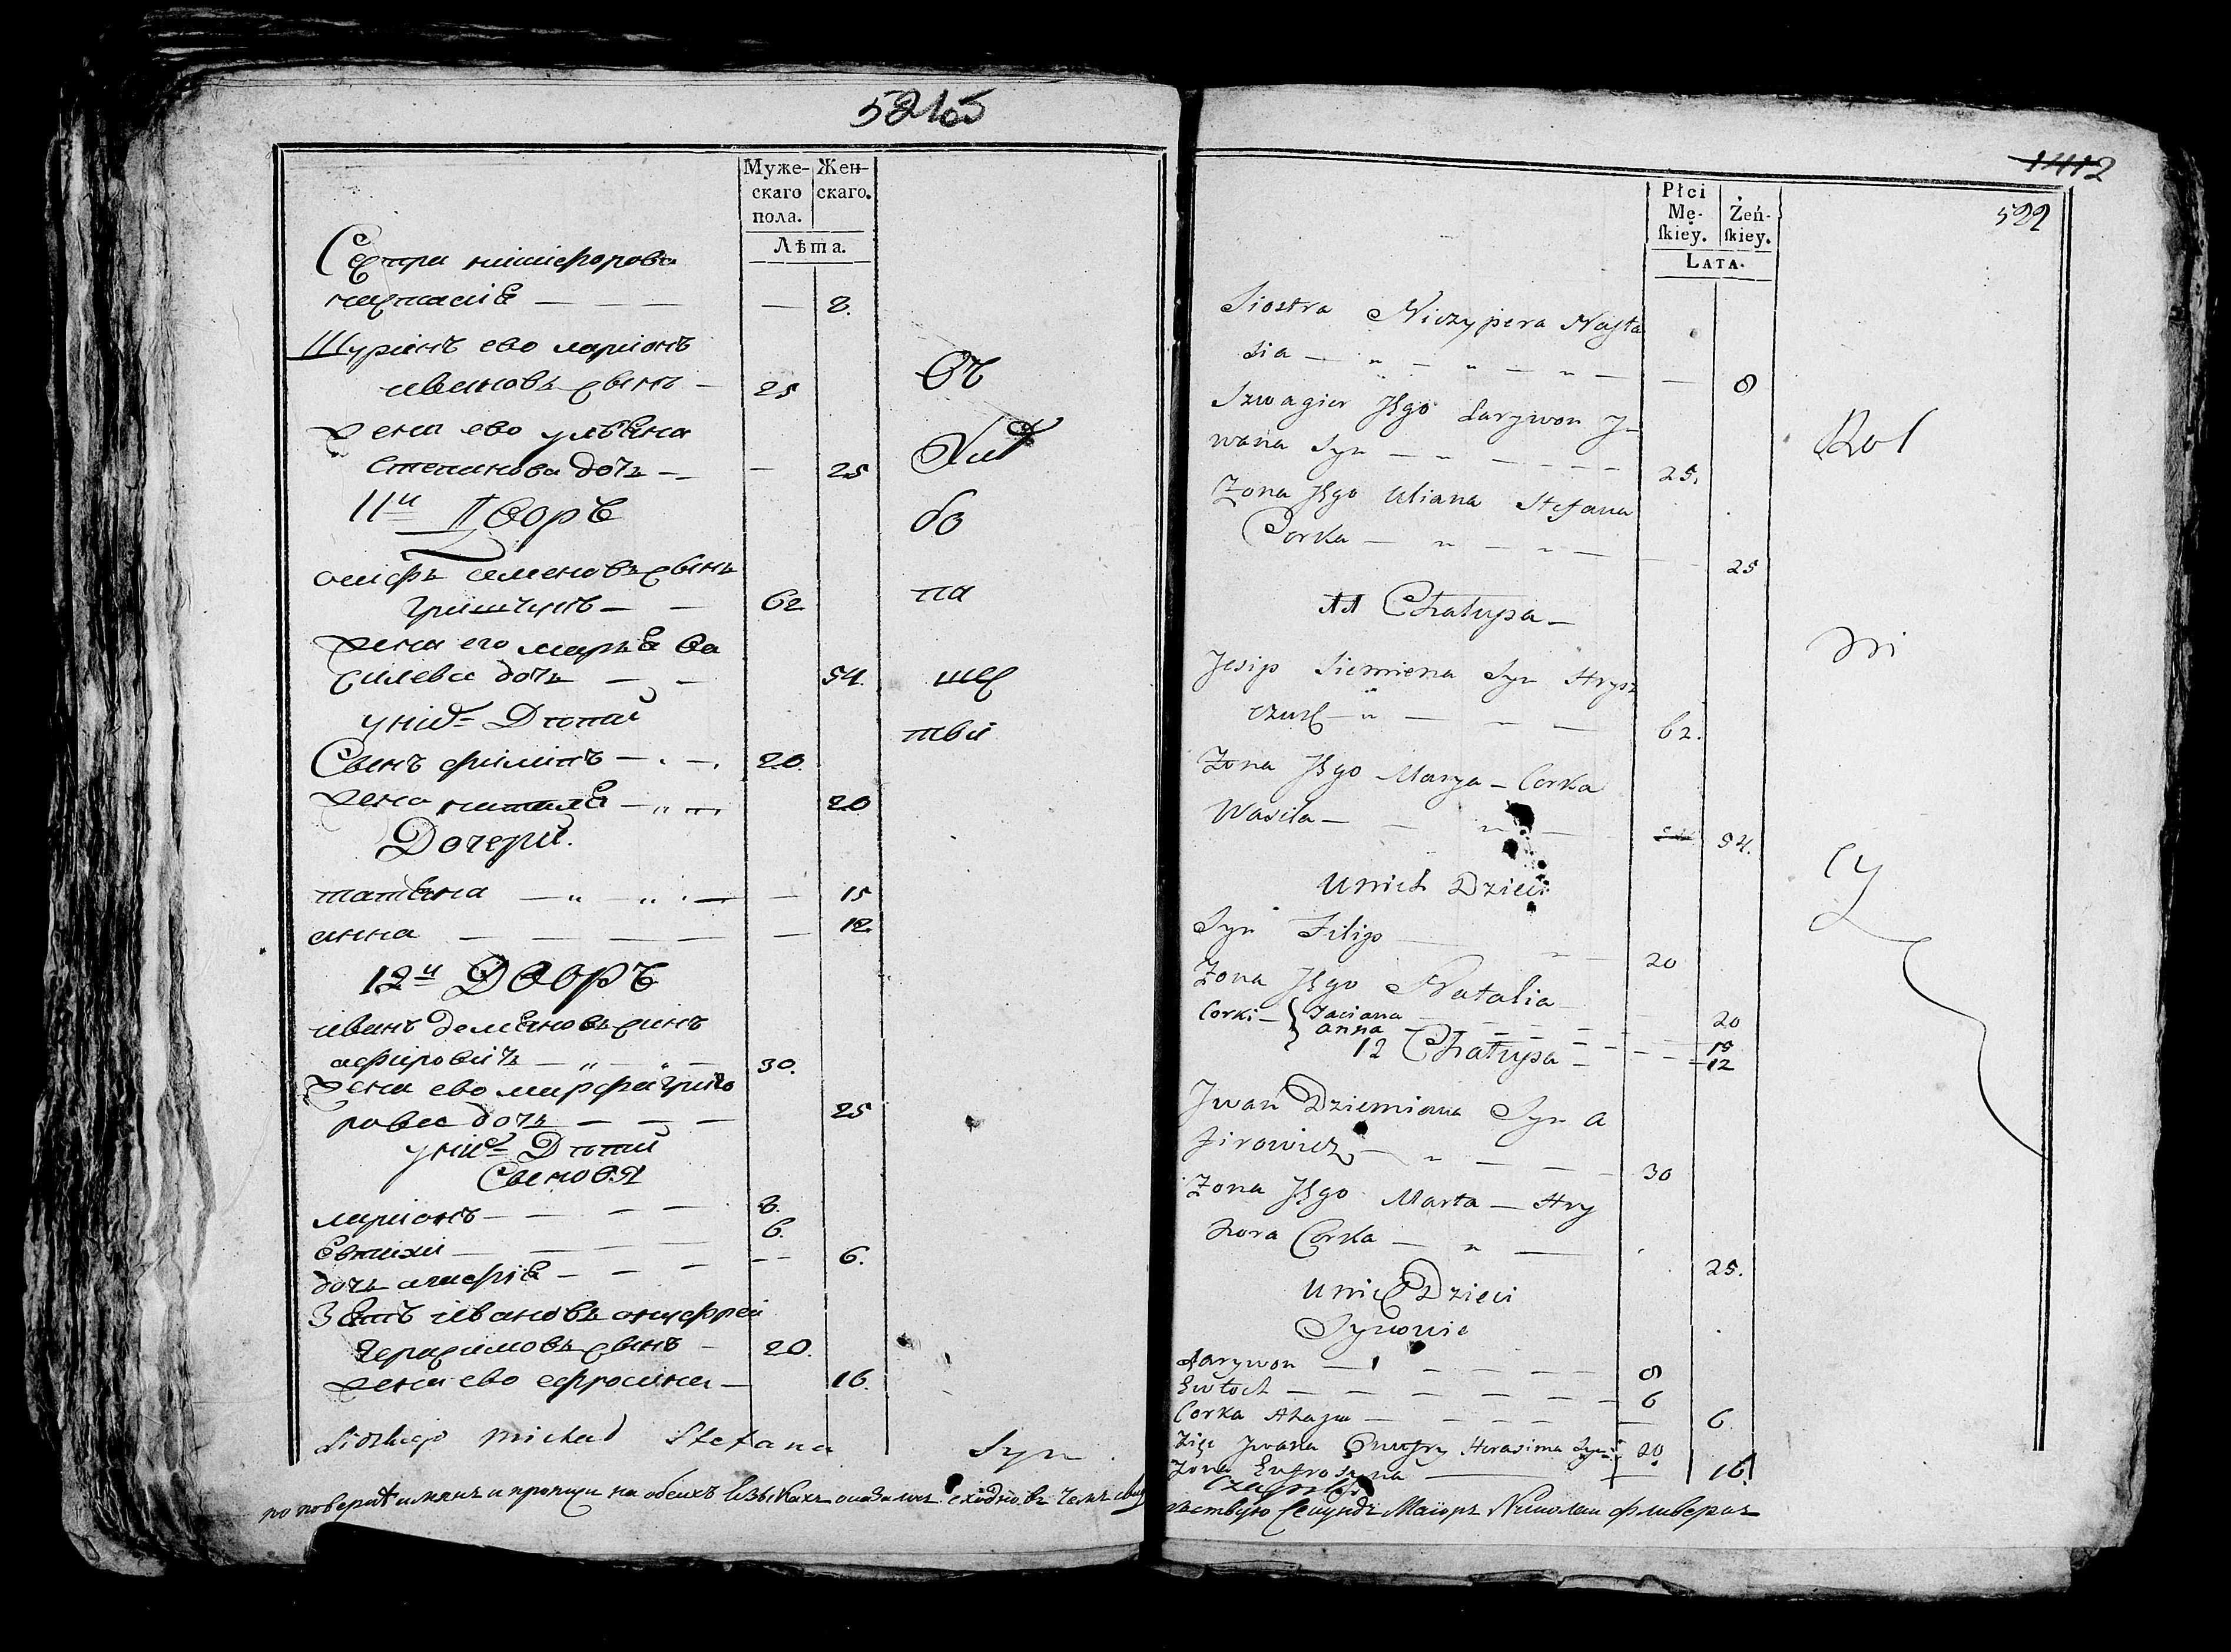 5215
Муже-
скаго
пола.
Жен-
скаго.
Лѣта.
Сестра ничипорова
настасія — — — — 8.
Шуринъ ево ларіонъ
ивановъ сынъ — 25
Жена ево ульяна
степанова дочь — — 25
11й Дворъ
осипъ семеновъ сынъ
гришчукъ — — 62
Жена его марья ва
силева дочь — — 54.
у нихъ Дѣти
Сынъ филипъ — . —. 20.
Жена наталя — „ — 20
Дочери.
татяна — „ — „ . — — 15
анна — — — — — 12.
12й Дворъ
иванъ демяновъ синъ
афировичъ — „ — „ — 30.
Жена ево марфа григо
рова дочь — — — 25
у нихъ Дѣти
Сыновя
ларіонъ — — — — 8.
Евтихи — — — — 6.
дочь агафія — — — — 6.
Зять ивановъ онуфреи
герасимовъ сынъ — 20.
жена ево ефросина — 16.
Michał Stefana Syn
по поверке имянъ и прописи на обеихъ языкахъ оказалось сходно въ чемъ свид
Отъ
бо
па
1412
522
Płci
Mę-
ſkiey.
Żeń-
ſkiey.
LATA.
Siostra Niczypera Nasta
sia — „ — „ — „ — — 8
Szwagier Jego Larywon J-
wana Syn — „ — — — — 25.
Zona Jego Uliana Stefana
Corka — „ — „ — — 25
11 Chałupa —
Jesip Siemiena Syn Hrysz
czuk — „ — — — 62.
Zona Jego Marya — Corka
Wasila — — „ — 54.
U nich Dzieci
Syn Filip — „ — 20
Zona Jego Natalia — 20
Corki — } Taciana — — — — 15
anna — — — — — 12
12 Chałupa —
Jwan Dziemiana Syn a
firowicz — „ — — — 30
Zona Jego Marta — Hry
hora Corka — „ — 25.
U nich Dzieci
Synowie
Larywon — — — — — 8
Ewtoch — — — — — — 6
Corka Ahafia — — — — — 6.
Zięć Jwana Onufry Herasima Syn 20.
Zona Eufrosyna — — 16.
тельствую Секундъ Маіоръ Николаи